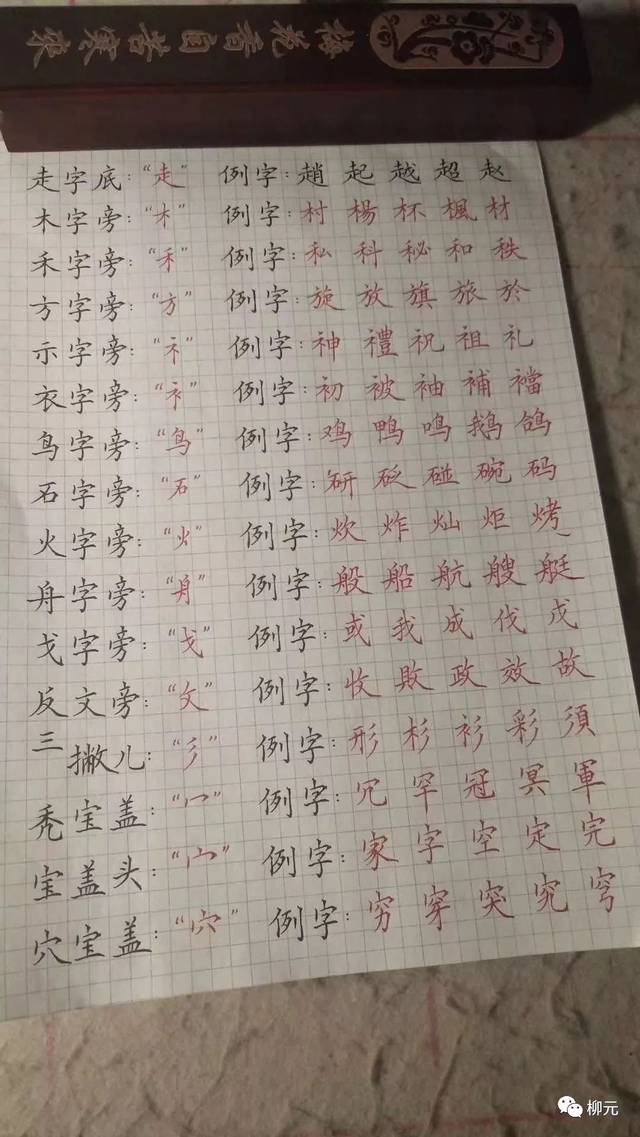 梅花香自苦寒来
走字底：“走” 例字：趙 起 越 超 赵
木字旁：“木” 例字：村 楊 杯 楓 材
禾字旁：“禾” 例字：私 科 秘 和 秩
方字旁：“方” 例字：施 放 旗 旅 於
示字旁：“礻” 例字：神 禮 祝 祖 礼
衣字旁：“衤” 例字：初 被 袖 補 襠
鸟字旁：“鸟” 例字：鸡 鸭 鸣 鹅 鸽
石字旁：“石” 例字：研 砭 碰 碗 码
火字旁：“火” 例字：炊 炸 灿 炬 烤
舟字旁：“舟” 例字：般 船 航 艘 艇
戈字旁：“戈” 例字：或 我 成 伐 戊
反文旁：“攵” 例字：收 敗 政 效 故
三撇儿：“彡” 例字：形 杉 衫 彩 須
秃宝盖：“冖” 例字：冗 罕 冠 冥 軍
宝盖头：“宀” 例字：家 字 空 定 完
穴宝盖：“穴” 例字：穷 穿 突 究 穹
柳元